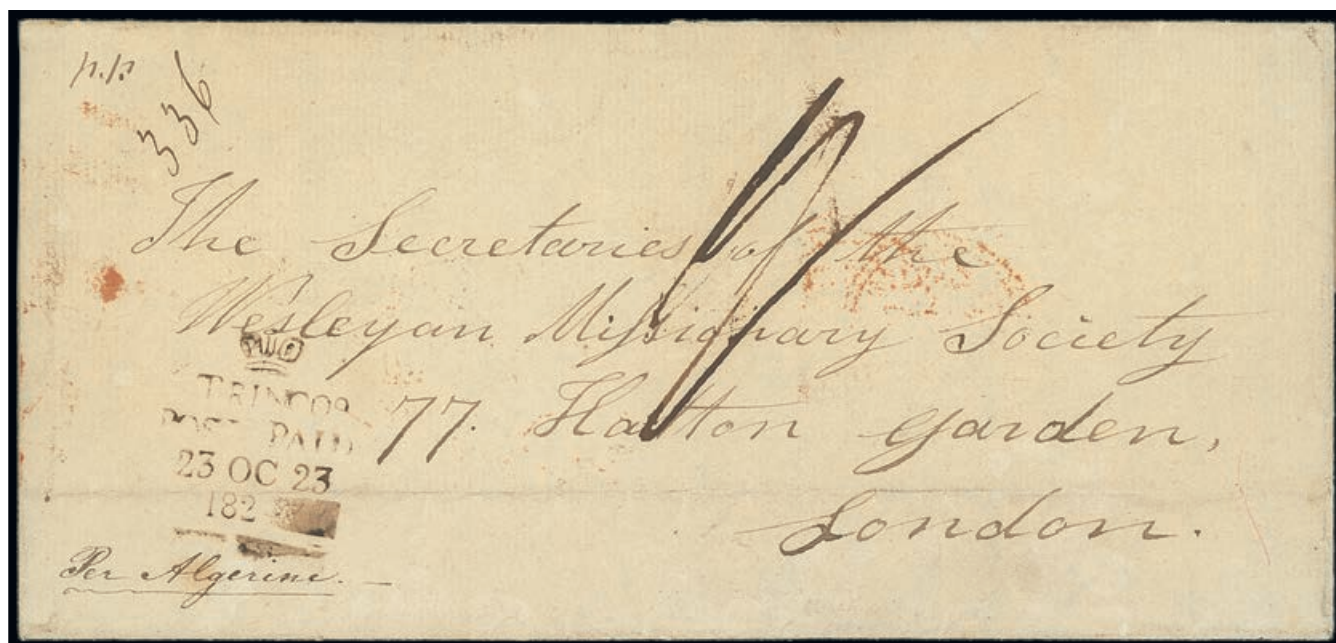 p.p.
336
The Secretaries of the
Wesleyan Missionary Society
77. Hatton Garden,
London.
TRINCO
POST PAID
23 OC 23
182
Per Algerine.